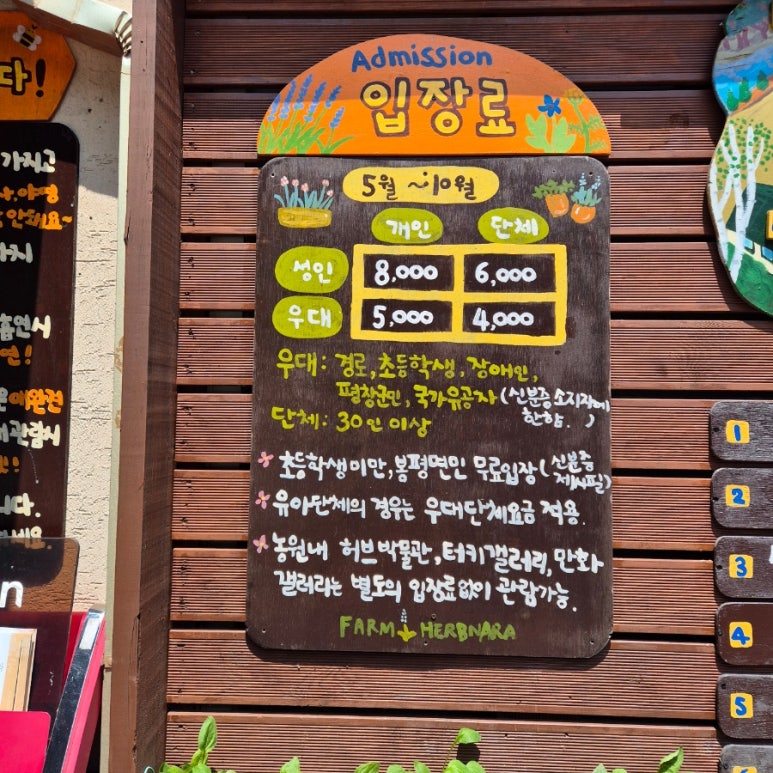 Admission
입장료
5월~10월
개인 단체
성인 8,000 6,000
우대 5,000 4,000
우대: 경로, 초등학생, 장애인,
평창군민, 국가유공자 (신분증 소지자에
한함.)
단체: 30인 이상
초등학생미만, 봉평면민 무료입장 (신분증
제시필)
유아단체의 경우는 우대단체요금 적용.
농원내 허브박물관, 터키갤러리, 만화
갤러리는 별도의 입장료없이 관람가능.
FARM HERBNARA
다!
가지고
1
2
3
4
5